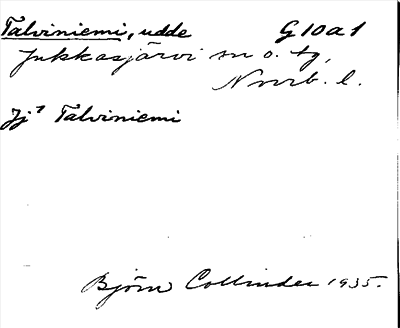 Talviniemi, udde G10a1
Jukkasjärvi sn o. tg,
Norrb. l.
Jj⁷ Talviniemi
Björn Collinder 1935.